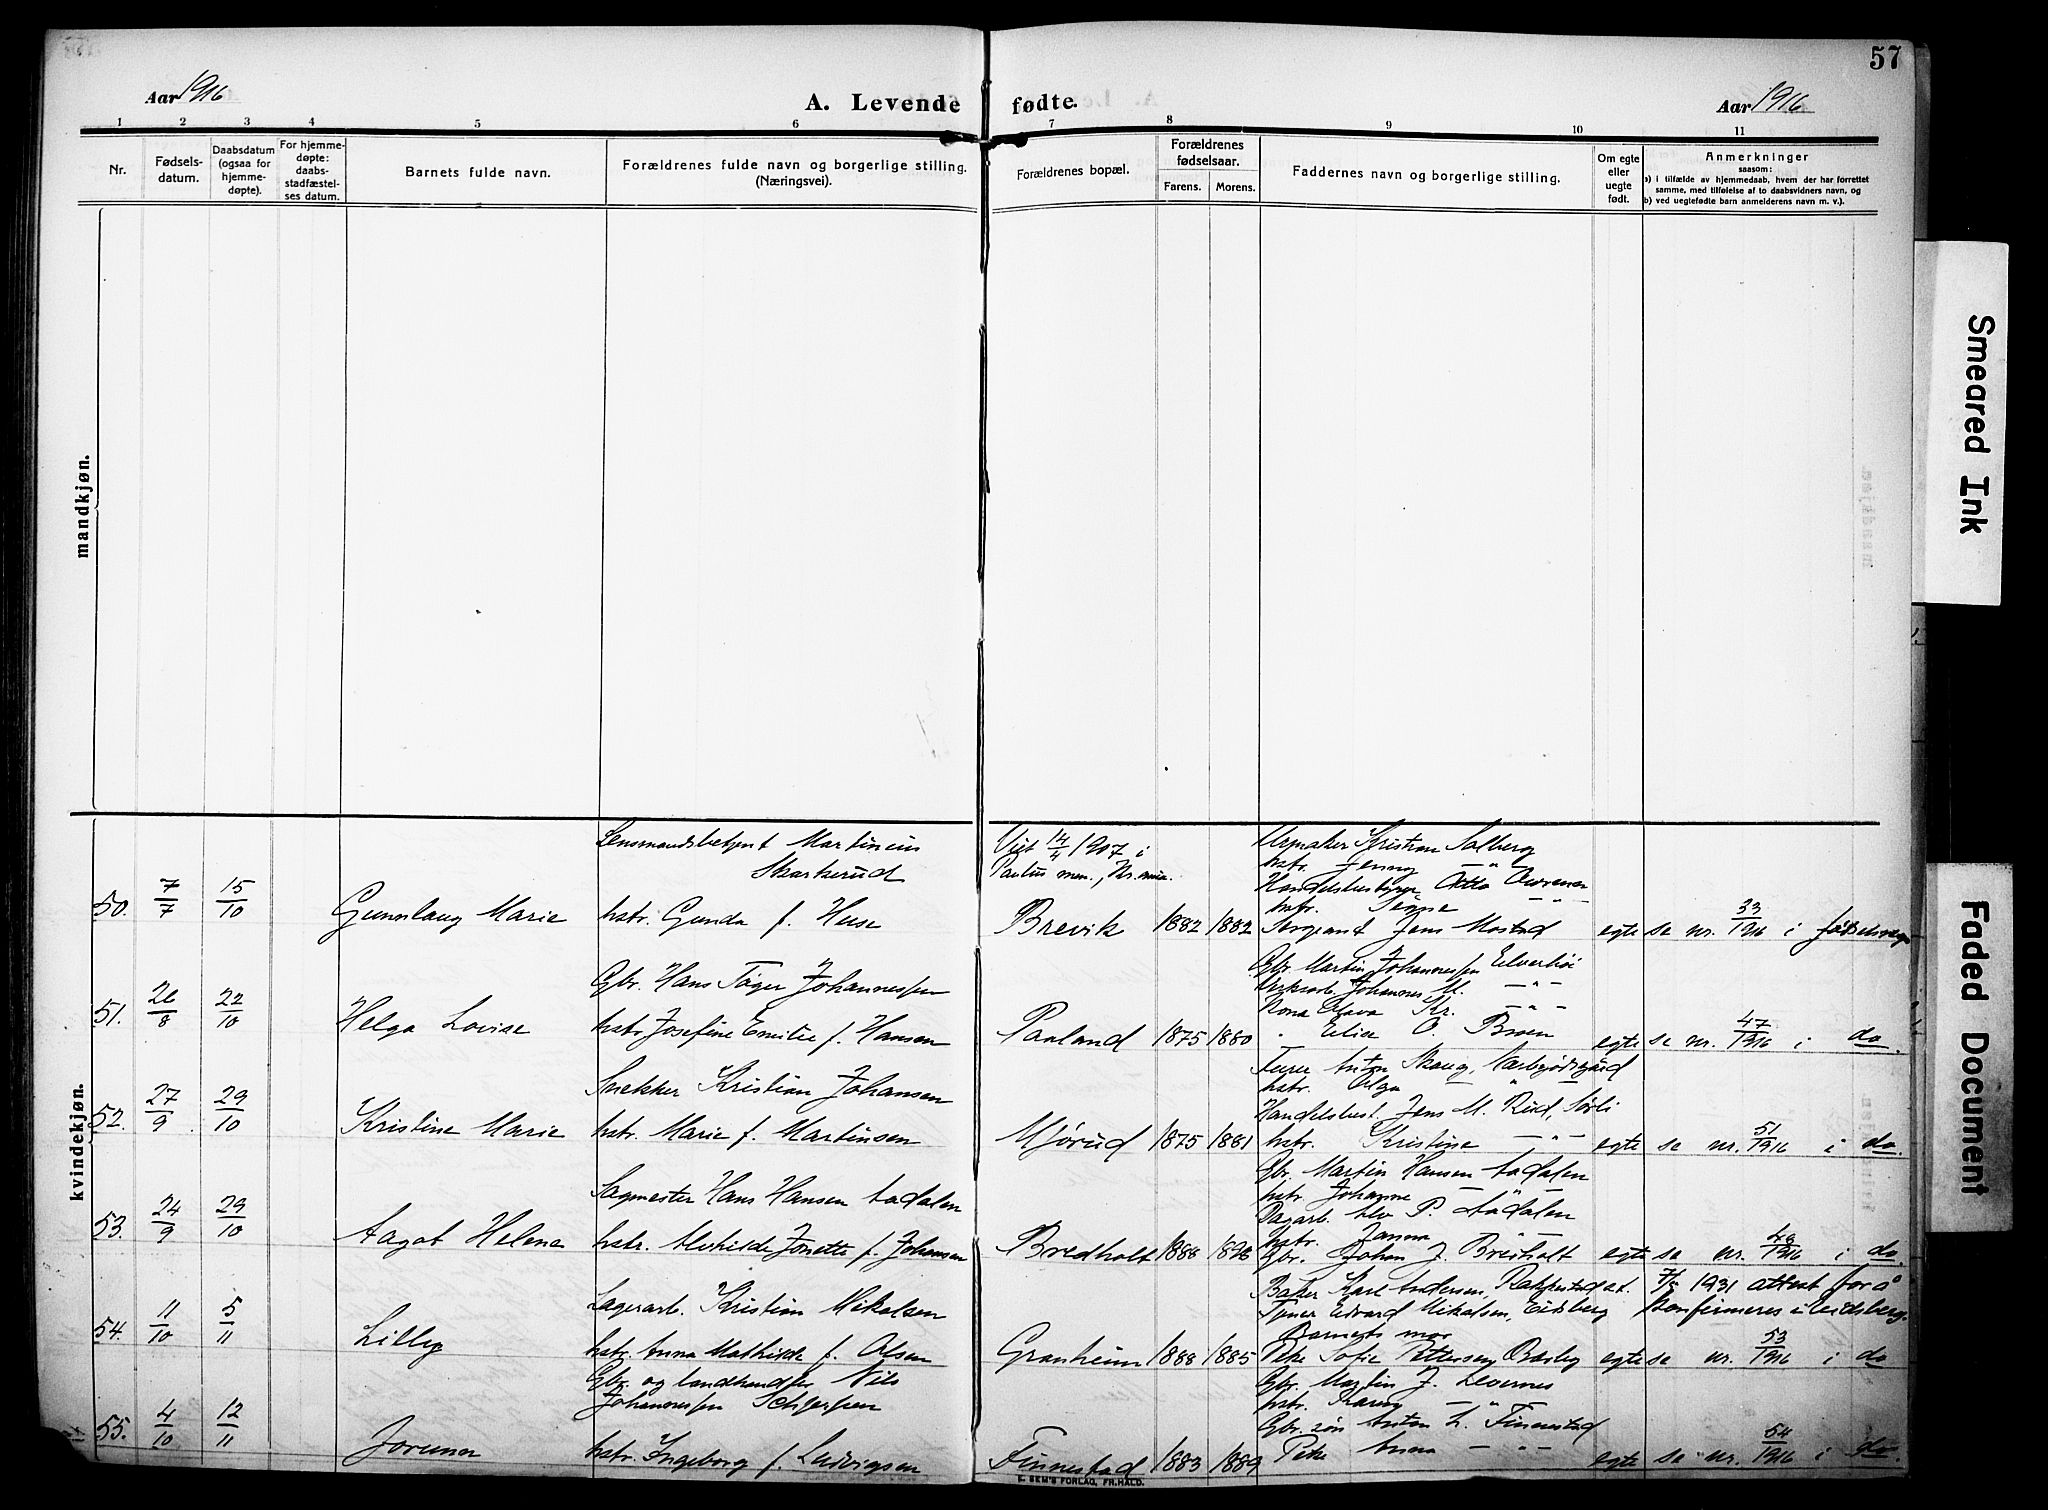 57
Aar 1916
A. Levende fødte.
Aar 1916.
1 2 3 4 5 6 7 8 9 10 11
Nr.
Fødsels-
datum.
Daabsdatum
(ogsaa for
hjemme-
døpte).
For hjemme-
døpte:
daabs-
stadfæstel-
ses datum.
Barnets fulde navn.
Forældrenes fulde navn og borgerlige stilling.
(Næringsvei).
Forældrenes bopæl.
Forældrenes
fødselsaar.
Farens. Morens.
Faddernes navn og borgerlige stilling.
Om egte
eller
uegte
født.
Anmerkninger
saasom:
a) i tilfælde av hjemmedaab, hvem der har forrettet
samme, med tilføielse af to daabsvidners navn, og
b) ved uegtefødte barn anmelderens navn m. v.).
mandkjøn.
kvindekjøn.
50. 7/7 15/10 Gunnlaug Marie
Lensmandsbetjent Martinius
Skarkerud
hstr. Gunda f. Huse
Viet 14/4 1907 i
Paulus men., Kr.nia.
Brevik 1882 1882
Urmaker Kristian Solberg
hstr. Jenny — " —
Handelsbestyrer Otto
hstr. Signe — " —
Sergeant Jens Mostad
egte se nr. 33/1916 i fødselsreg.
51. 26/8 22/10 Helga Lovise
Gbr. Hans Tøger Johannessen
hstr. Josefine Emilie f. Hansen
Paaland 1875 1880
Gbr. Martin Johannessen Elverhøi
Johannes M. — " —
Kona Olava Kr. — " —
" Elise O. Braen
egte se nr. 47/1916 i do.
52. 27/9 29/10 Kristine Marie
Snekker Kristian Johansen
hstr. Marie f. Martinsen
Mjørud 1875 1881
Furer Anton Skaug,
hstr. Olga — " —
Handelsbest. Jens M. Rud, Sørli
hstr. Kristine — " —
egte se nr. 51/1916 i do.
53. 24/9 29/10 Aagot Helene
Sagmester Hans Hansen Aadalen
hstr. Alvhilde Jonette f. Johansen
Bredholt 1888
Gbr. Martin Hansen Aadalen
hstr. Johanne — " —
Dagarb. Alv P. Aadalen
hstr. Janna — " —
Gbr. Johan J. Breiholt
egte se nr. 48/1916 i do.
54. 11/10 5/11 Lilly
Lagerarb. Kristian Mikalsen
hstr. Anna Mathilde f. Olsen
Granheim 1888 1885
Baker Karl Andersen, Rakkestad st.
Edvard Mikalsen, Eidsberg
Barnets mor
Pike Sofie Pettersen,
1931 attest for å
konfirmeres i Eidsberg.
egte se nr. 53/1916 i do
55. 4/10 12/11 Jorunn
Gbr. og landhandler Nils
Johannessen
hstr. Ingeborg f. Ludvigsen
Finnestad 1883 1889
Gbr. Martin J. Levernes
hstr. Karen — " —
Gbr. søn Anton L. Finnestad
Pike Anna — " —
egte se nr. 54/1916 i do.
E. SEM'S FORLAG, FR.HALD.
Smeared Ink
Faded Document